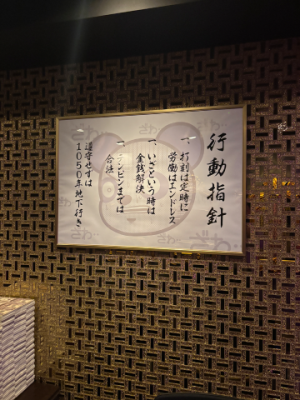 行動指針
一、打刻は定時に
労働はエンドレス
一、いざという時は
金銭解決
一、テンピンまでは
合法
遵守せずは
1050年地下行き